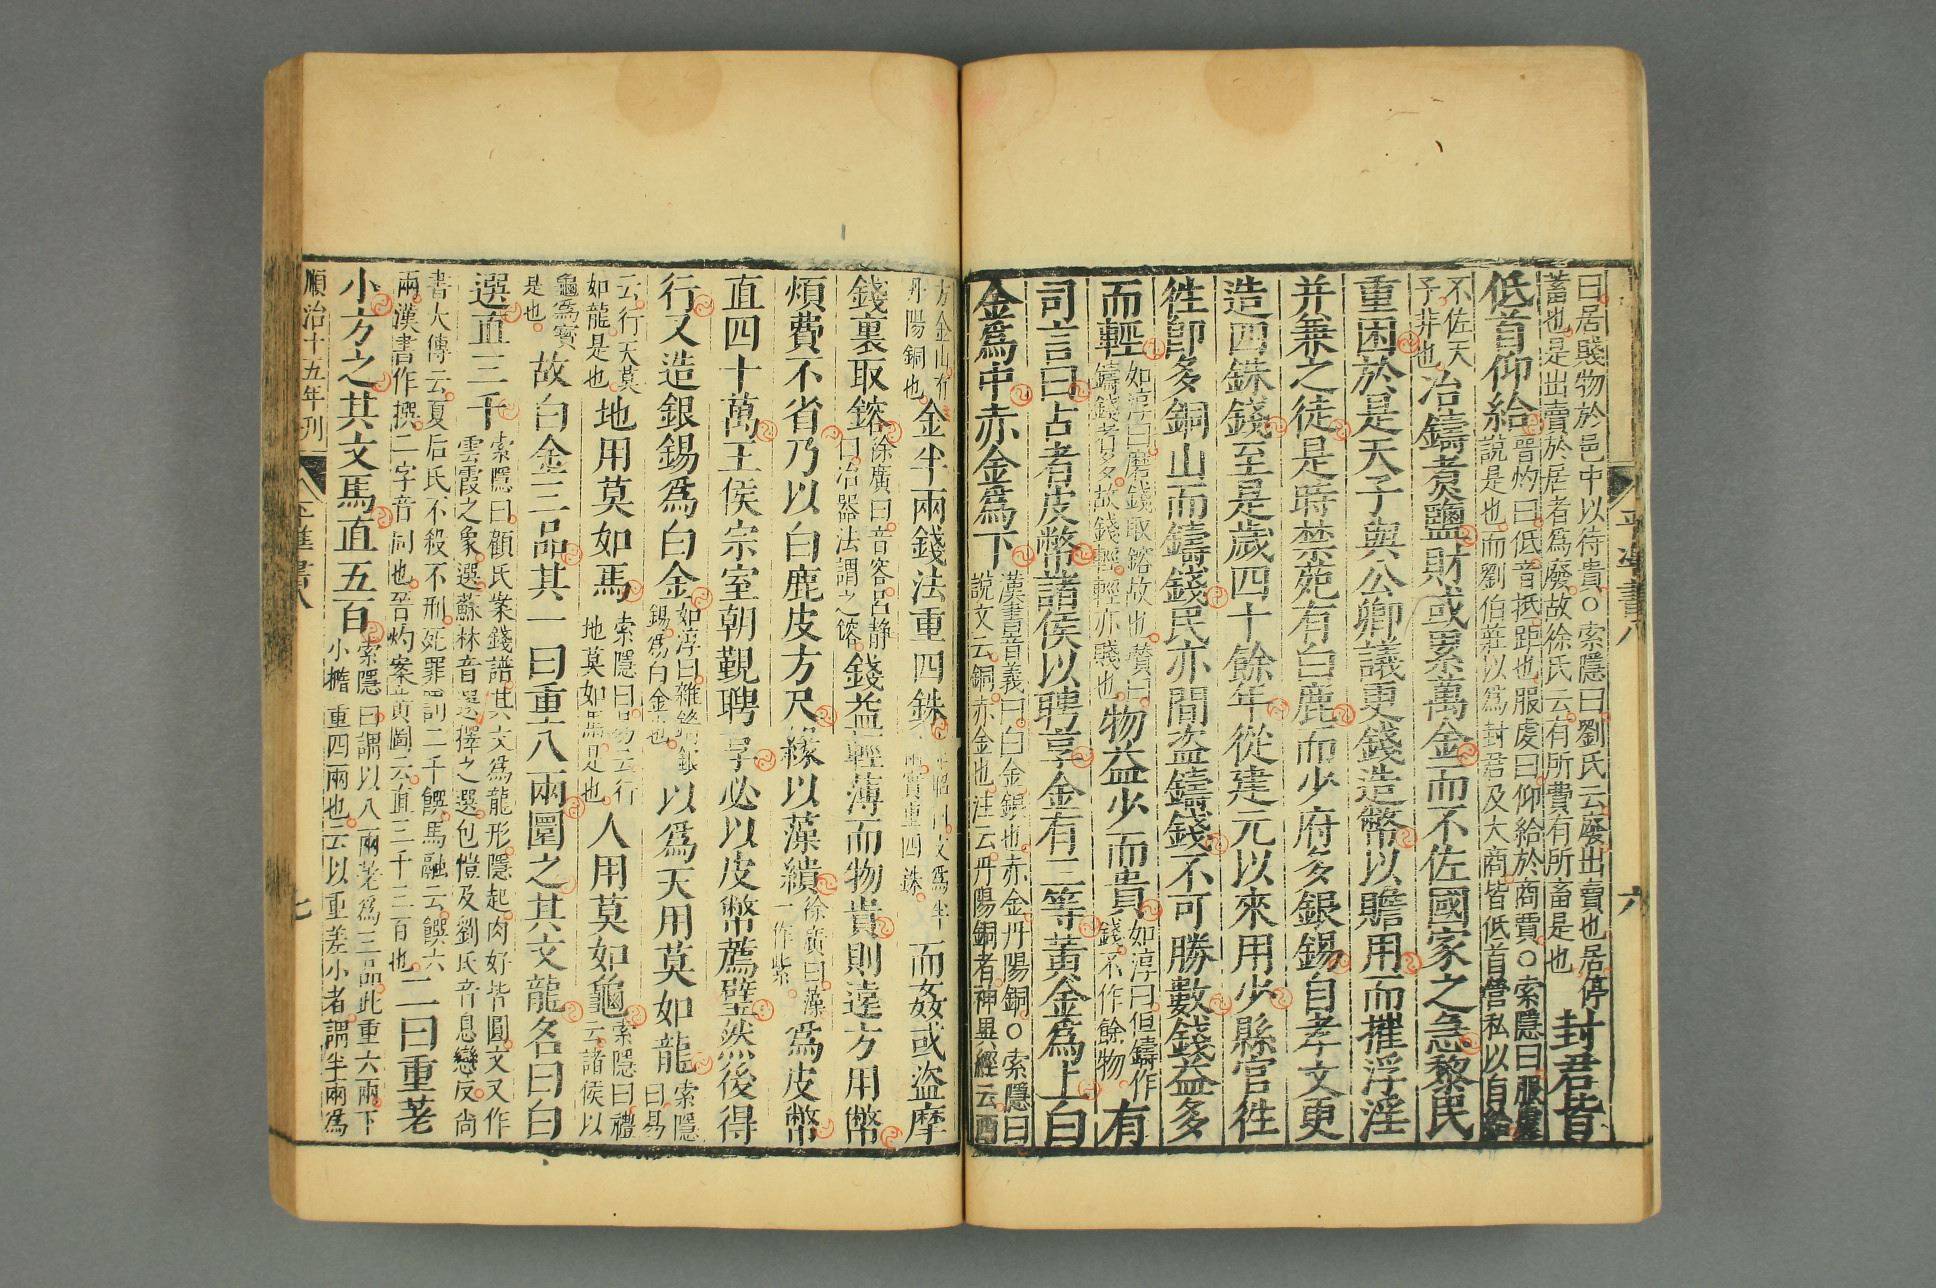 平準書八 六
曰居賤物於邑中以待貴○索隱曰劉氏云廢出賣也居停
蓄也是出賣於居者為廢故徐氏云有所費有所畜是也
封君皆
低首仰給
晉灼曰低音抵距也服虔曰仰給於商賈○索隱曰服虔
說是也而劉伯莊以為封君及大商皆低首營私以自給
不佐天
子非也
冶鑄煮鹽財或累萬金而不佐國家之急黎民
重困於是天子與公卿議更錢造幣以贍用而摧浮淫
并兼之徒是時禁苑有白鹿而少府多銀錫自孝文更
造四銖錢至是歲四十餘年從建元以來用少縣官徃
徃卽多銅山而鑄錢民亦間盜鑄錢不可勝數錢益多
而輕
如淳曰磨錢取鎔故也瓚曰
鑄錢者多故錢輕輕亦賤也
物益少而貴
如淳曰但鑄作
錢不作餘物
有
司言曰古者皮幣諸侯以聘享金有三等黃金爲上白
金爲中赤金爲下
漢書音義曰白金銀也赤金丹陽銅○索隱曰
說文云銅赤金也注云丹陽銅者神異經云西
方金山有
丹陽銅也
金半兩錢法重四銖
韋昭曰文為半
兩實重四銖
而姦或盜摩
錢裏取鎔
徐廣曰音容呂靜
曰冶器法謂之鎔
錢益輕薄而物貴則遠方用幣
煩費不省乃以白鹿皮方尺緣以藻繢
徐廣曰藻
一作紫
爲皮幣
直四十萬王侯宗室朝覲聘享必以皮幣薦璧然後得
行又造銀錫爲白金
如淳曰雜鑄銀
錫為白金也
以爲天用莫如龍
索隱
曰易
云行天莫
如龍是也
地用莫如馬
索隱曰易云行
地莫如馬是也
人用莫如龜
索隱曰禮
云諸侯以
龜為寶
是也
故白金三品其一曰重八兩圜之其文龍名曰白
選直三千
索隱曰顧氏案錢譜其文為龍形隱起肉好皆圓文又作
雲霞之象選蘇林音選擇之選包愷及劉氏音息戀反尚
書大傳云夏后氏不殺不刑死罪罰二千饌馬融云饌六
兩漢書作撰二字音同也晉灼案黃圖云直三千三百也
二曰重差
小方之其文馬直五百
索隱曰謂以八兩差為三品此重六兩下
小橢重四兩也云以重差小者謂半兩為
順治十五年刊 平準書八 七